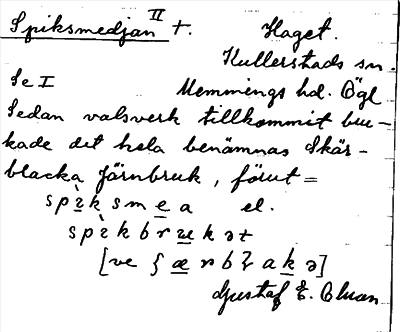 Spiksmedjan II t. Haget.
Kullerstads sn.
Se I Memmings hd. Ögl
Sedan valsverk tillkommit bru-
kade det hela benämnas Skär-
blacka Järnbruk, förut =
spìksmea el.
spìkbrukət
[ve{ærb}akə]
Gustaf E. Bluan